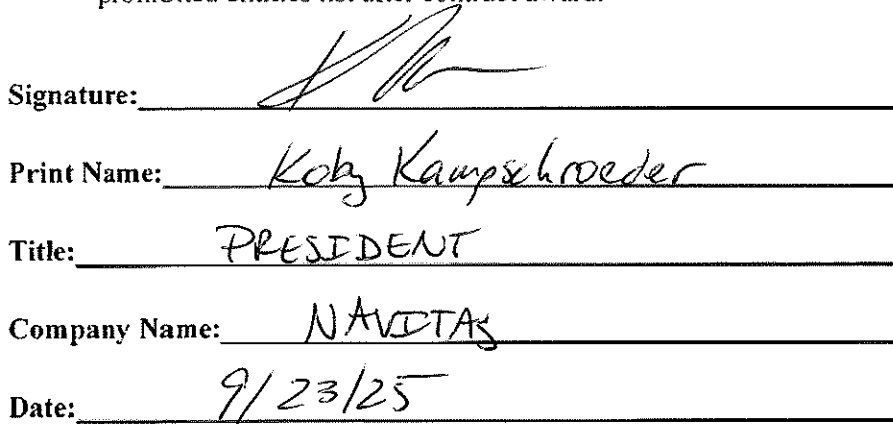 Signature:
Print Name: Koby Kampschroeder
Title: PRESIDENT
Company Name: NAVITAS
Date: 9/23/25